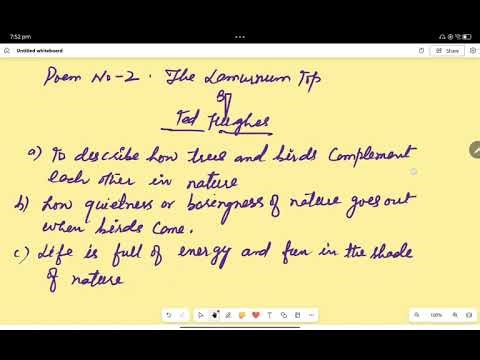 7:52 pm
Untitled whiteboard
Share
Poem No-2. The Lamurnum Top
By
Ted Hughes
a) To describe how trees and birds complement
each other in nature
b) how quietness or boringness of nature goes out
when birds come.
c) Life is full of energy and fun in the shade
of nature
100%